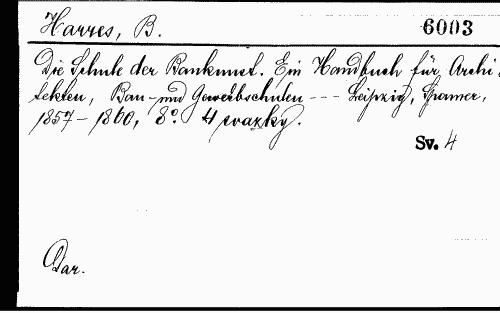 Harres, B.
6003
Die Schule der Baukunst. Ein Handbuch für Archi-
tekten, Bau- und Gewerbschulen --- Leipzig, Spamer,
1857-1860, 8°. 4 svazky.
Sv. 4
Dar.